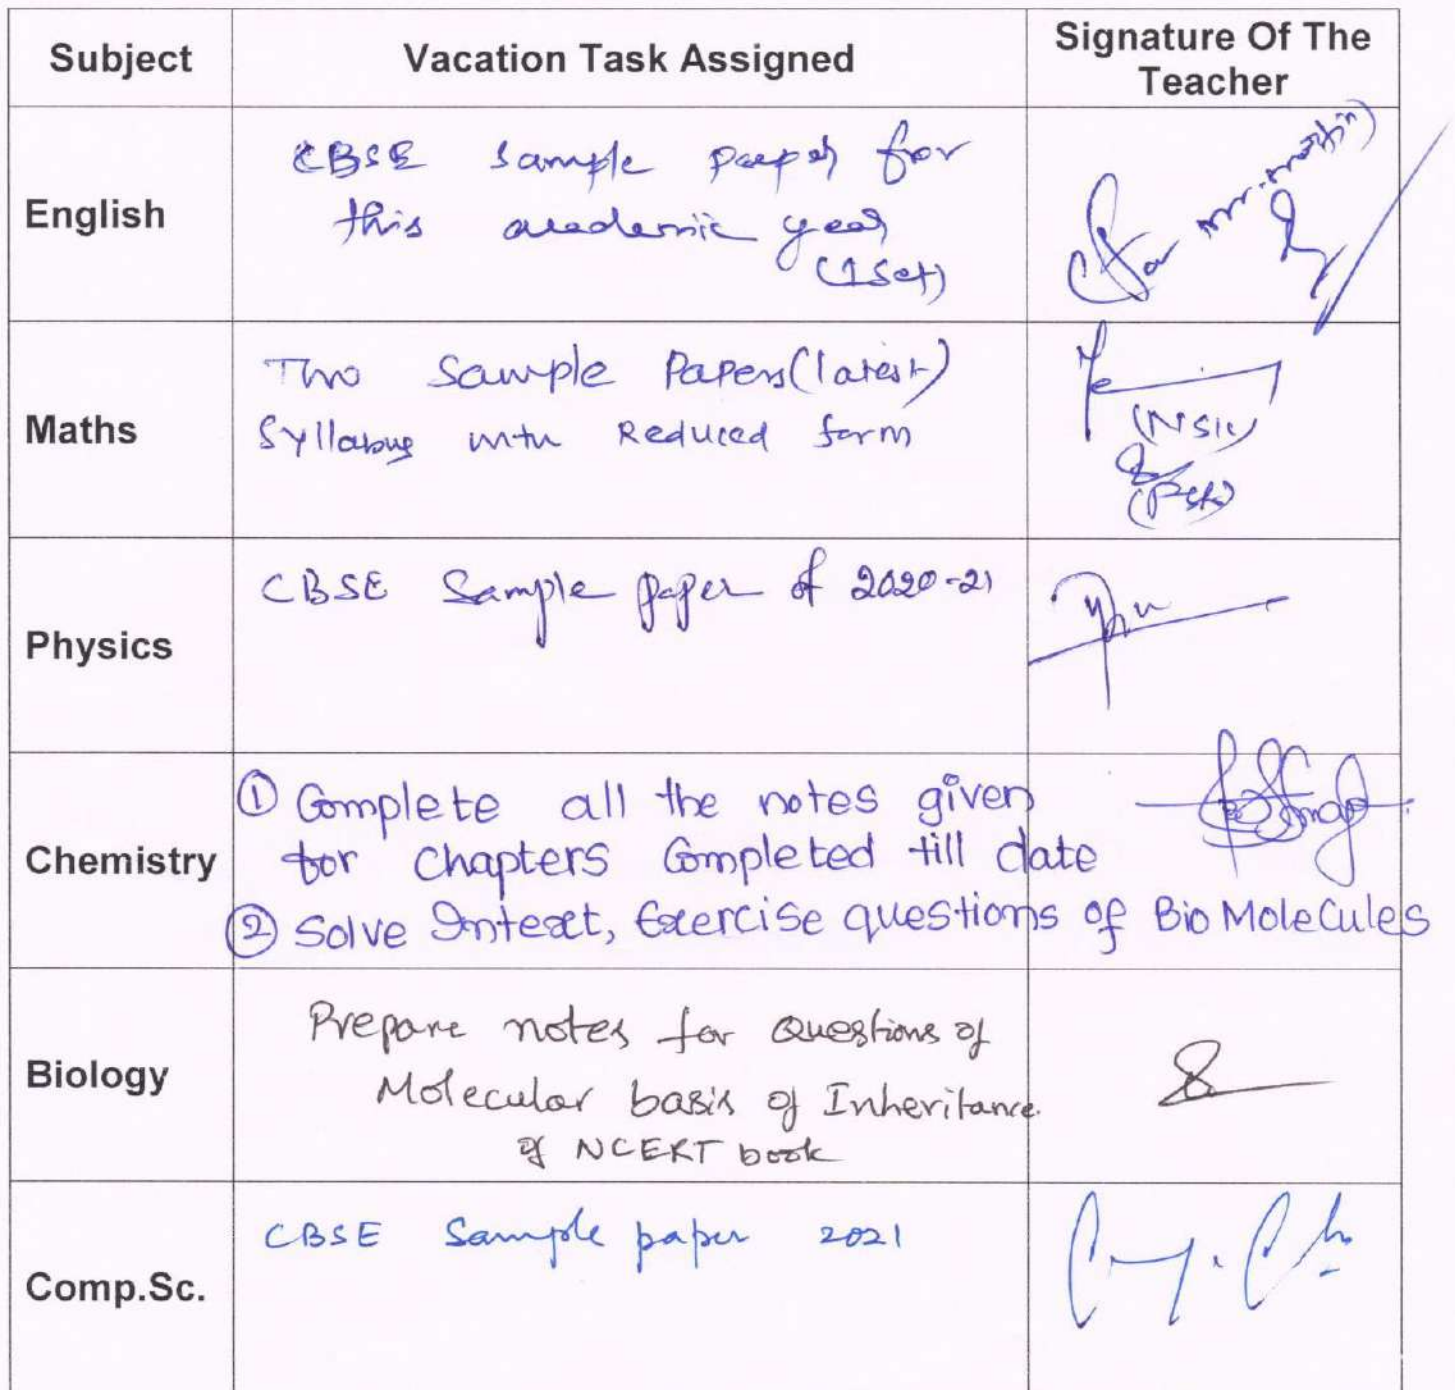 Subject Vacation Task Assigned Signature Of The
Teacher
English
CBSE sample paper for
this academic year
(1Set)
(for mr. martin)
Maths
Two Sample Papers (latest)
Syllabus with Reduced form
Physics
CBSE Sample paper of 2020-21
Chemistry
① Complete all the notes given
for chapters Completed till date
② Solve Intext, Exercise questions of Bio Molecules
Biology
Prepare notes for Questions of
Molecular basis of Inheritance
of NCERT book
Comp.Sc.
CBSE Sample paper 2021